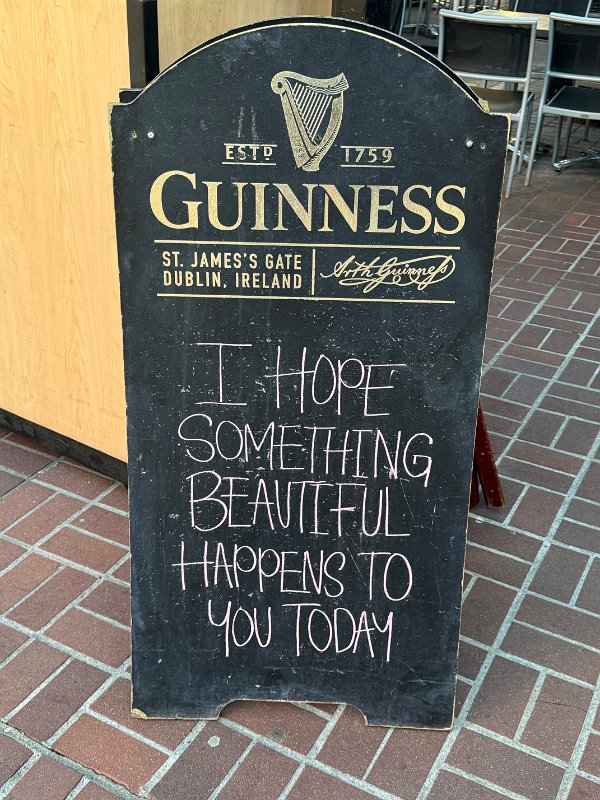 ESTD 1759
GUINNESS
ST. JAMES'S GATE
DUBLIN, IRELAND
Arth Guinness
I HOPE
SOMETHING
BEAUTIFUL
HAPPENS TO
YOU TODAY